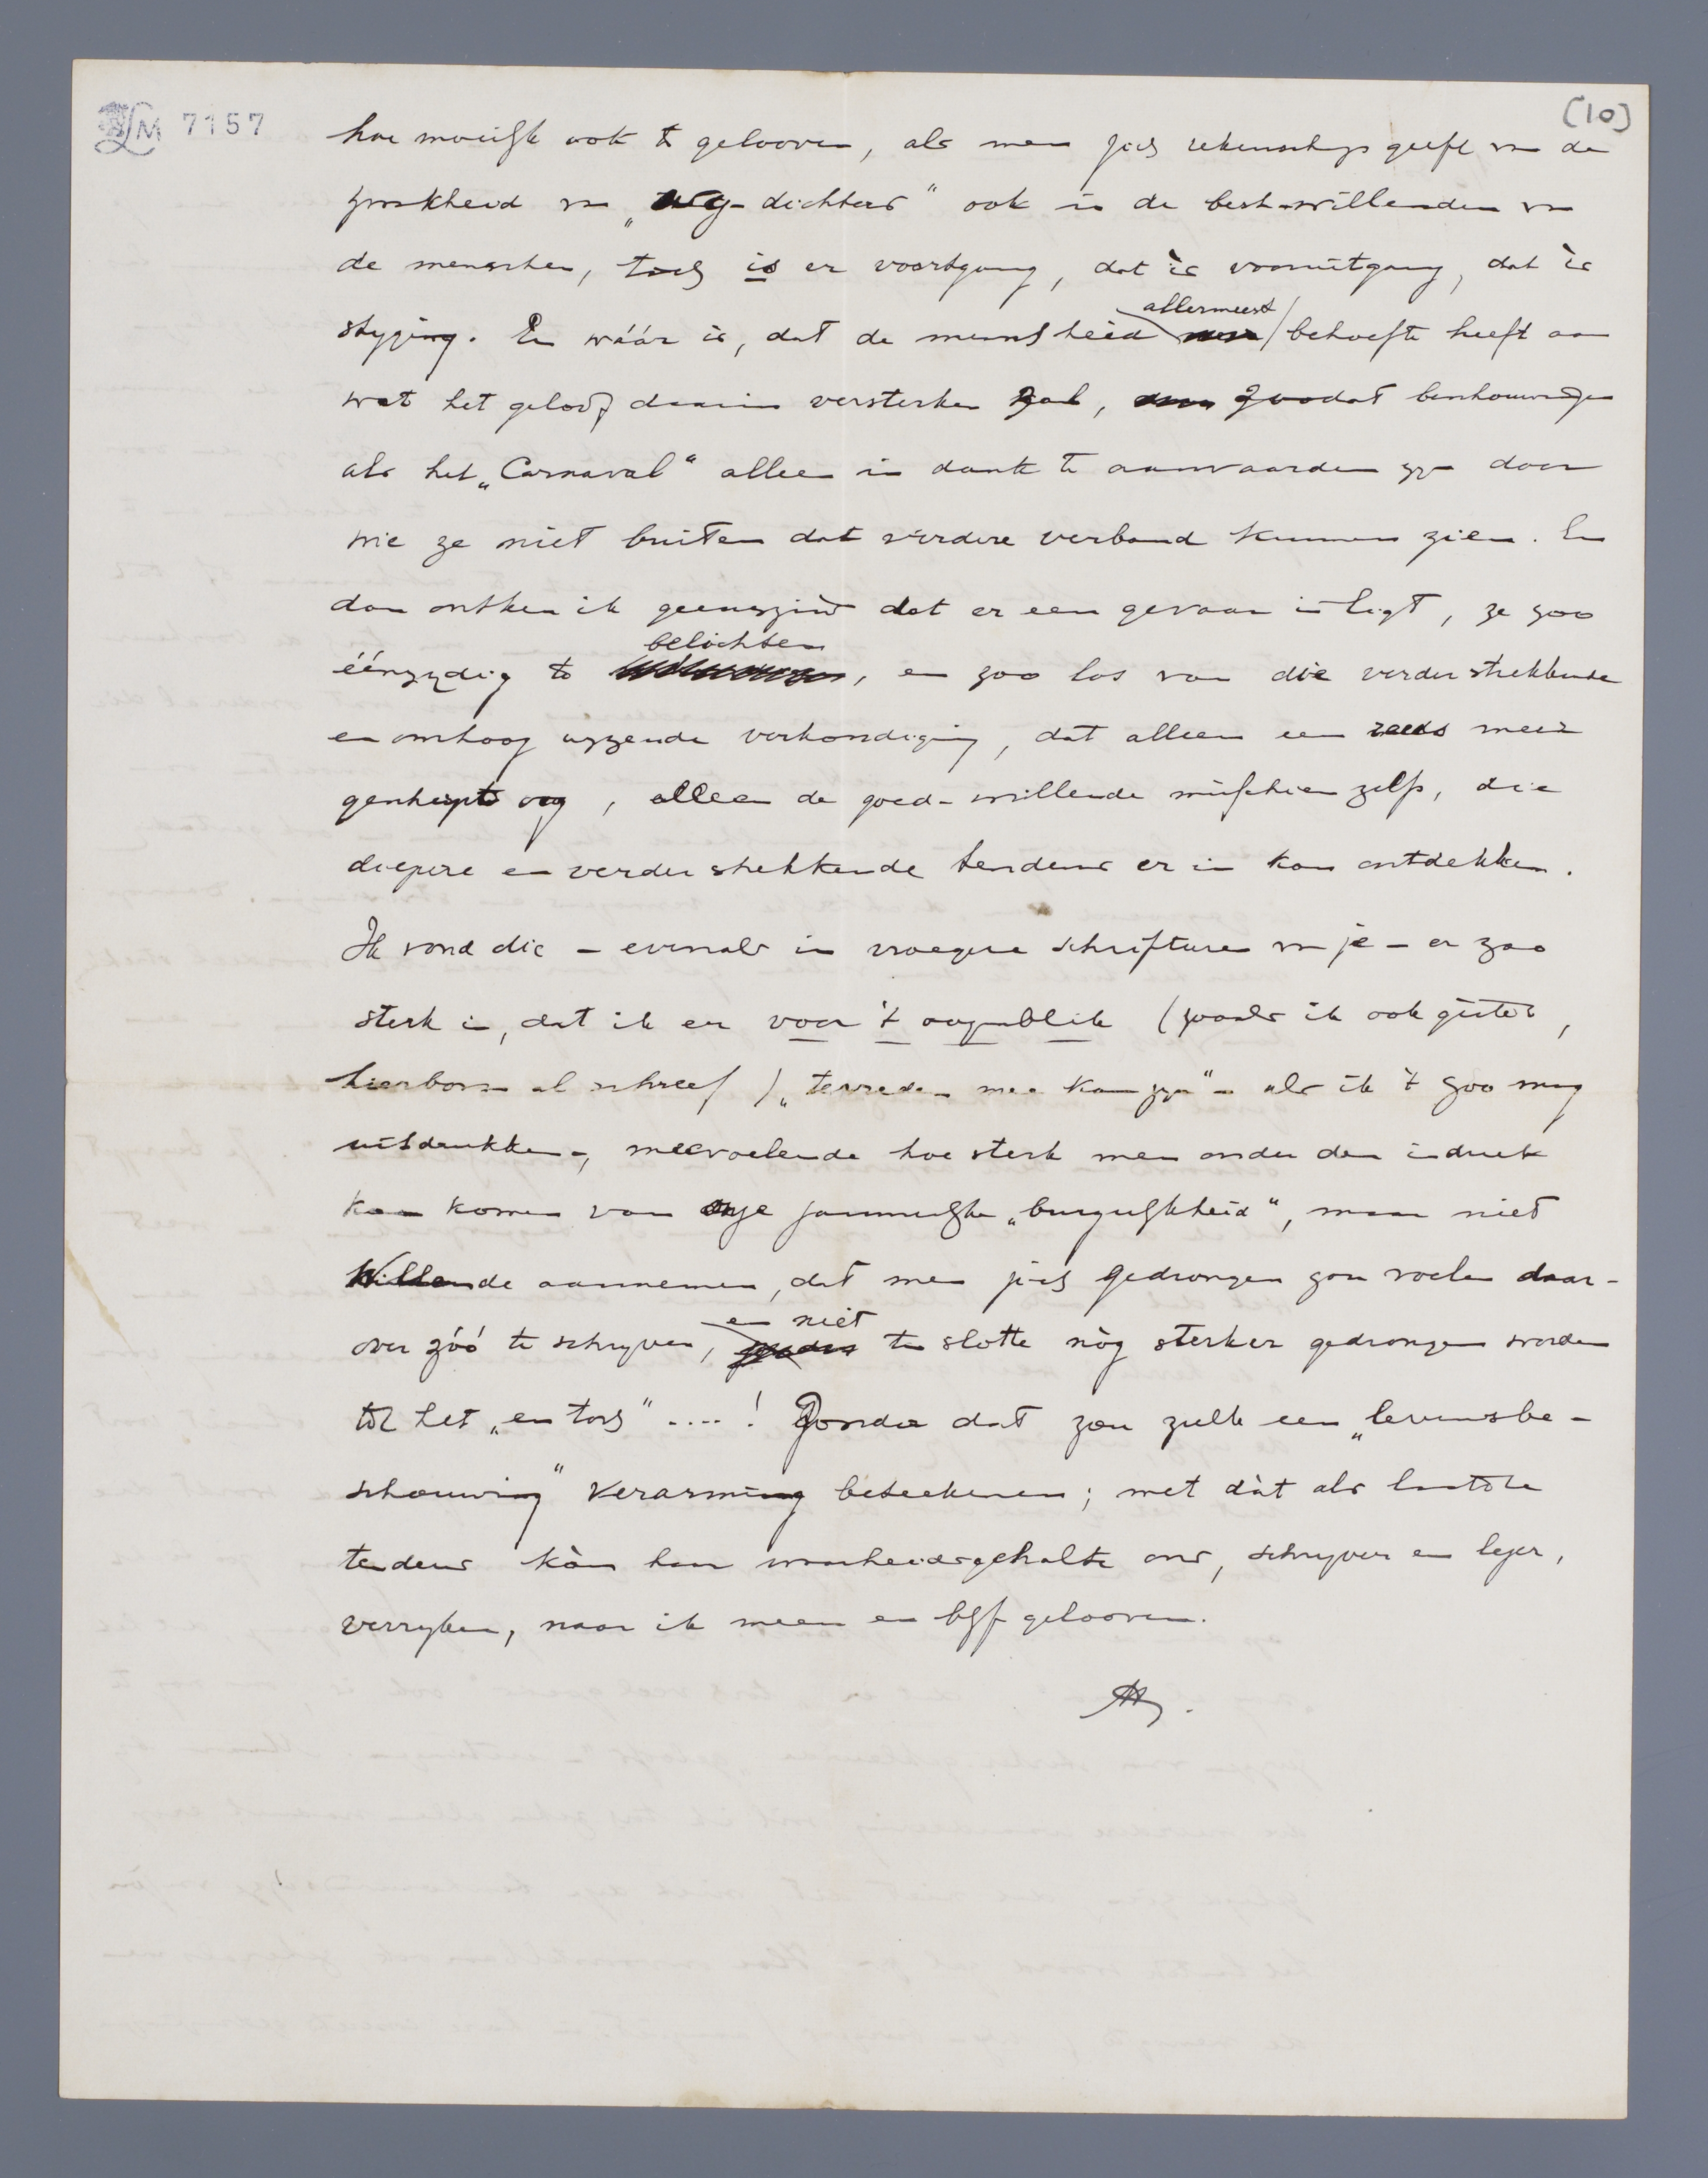 LM 7157
(10)
hoe moeilijk ook te gelooven, als men zich rekenschap geeft van de
zwakheid van „weg-dichters" ook in de best-willenden van
de menschen, toch is er voortgang, dat is vooruitgang, dat is
stijging. En wáár is, dat de menschheid allermeest behoefte heeft aan
wat het geloof daarin versterken zal, zoodat beschouwingen
als het „Carnaval" alleen in dank te aanvaarden zijn door
wie ze niet buiten dat verdere verband kunnen zien. En
dan ontken ik geenszins dat er een gevaar in ligt, ze zoo
éénzijdig te belichten, en zoo los van die verder strekkende
en omhoog wijzende verkondiging, dat alleen een reeds meer
gescherpt oog, alleen de goed-willende misschien zelfs, die
diepere en verder strekkende tendens er in kan ontdekken.
Ik vond die – evenals in vroegere schrifturen van je – er zoo
sterk in, dat ik er voor 't oogenblik (zooals ik ook gister,
hierboven al schreef) „tevreden mee kan zijn" – als ik 't zoo mag
uitdrukken –, meevoelende hoe sterk men onder den indruk
kan komen van onze jammerlijke „burgerlijkheid", maar niet
willende aannemen, dat men zich gedrongen zou voelen daar-
over zóó te schrijven, en niet ten slotte nòg sterker gedrongen worden
tot het „en toch" ....! Zonder dat zou zulk een „levensbe-
schouwing" verarming beteekenen; met dàt als laatste
tendens kàn haar waarheidsgehalte ons, schrijver en lezer,
verrijken, naar ik meen en blijf gelooven.